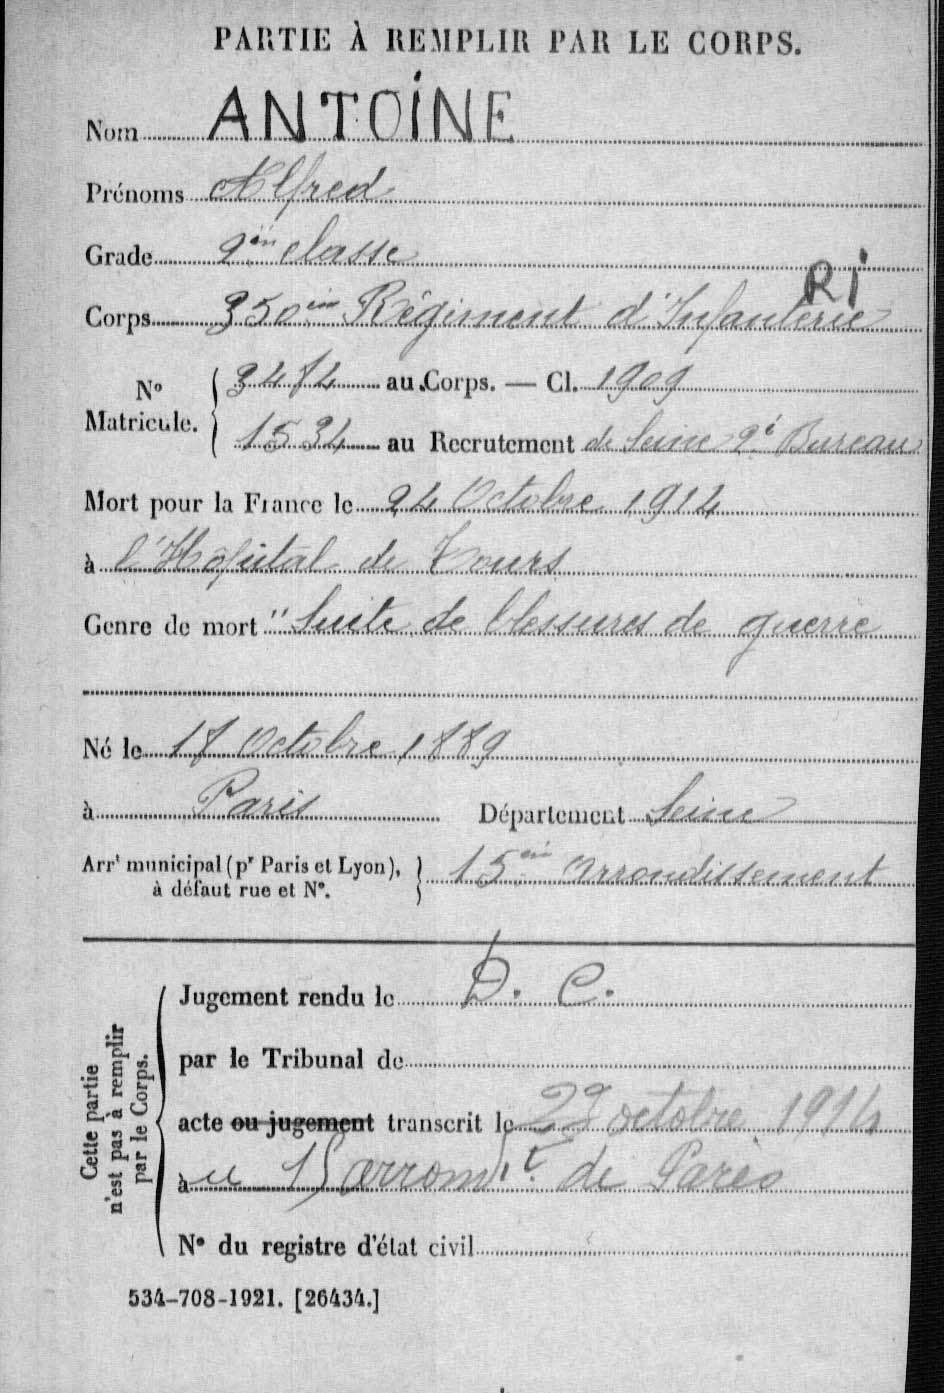 PARTIE À REMPLIR PAR LE CORPS.
Nom ANTOINE
Prénoms Alfred
Grade 2èm classe
RI
Corps 350èm Régiment d'Infanterie
N° Matricule. 3484 au Corps. — Cl. 1909
1534 au Recrutement de Seine 2è Bureau
Mort pour la France le 24 Octobre 1914
à l'Hôpital de Tours
Genre de mort "Suite de blessures de guerre
Né le 18 Octobre 1889
à Paris Département Seine
Arrt municipal (pr Paris et Lyon), à défaut rue et N°. 15èm Arrondissement
Cette partie n'est pas à remplir par le Corps.
Jugement rendu le D. C.
par le Tribunal de
acte ou jugement transcrit le 29 octobre 1914
à u 15 arrondt de Paris
N° du registre d'état civil
534-708-1921. [26434.]